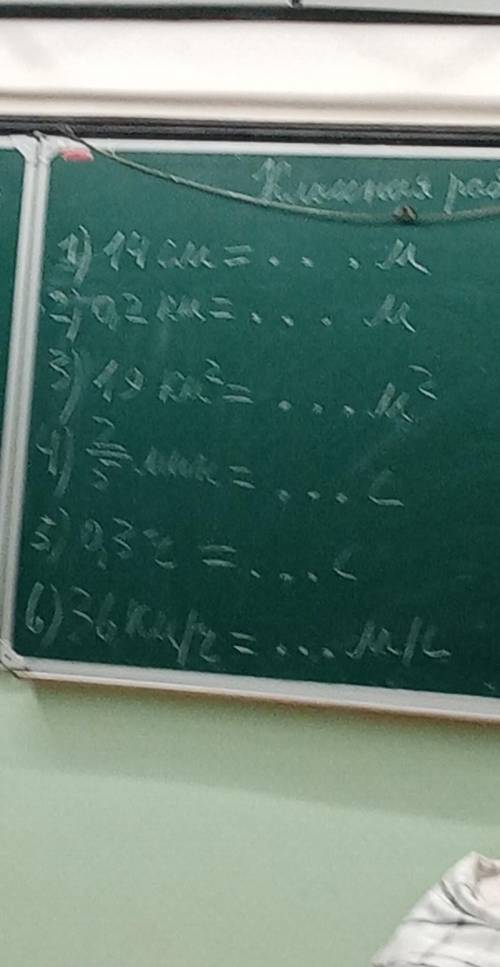 Классная раб
1) 14 см = . . . м
2) 0,2 км = . . . м
3) 19 км² = . . . м²
4) 2/5 мин = . . . с
5) 0,3 ч = . . . с
6) 36 км/ч = . . . м/с